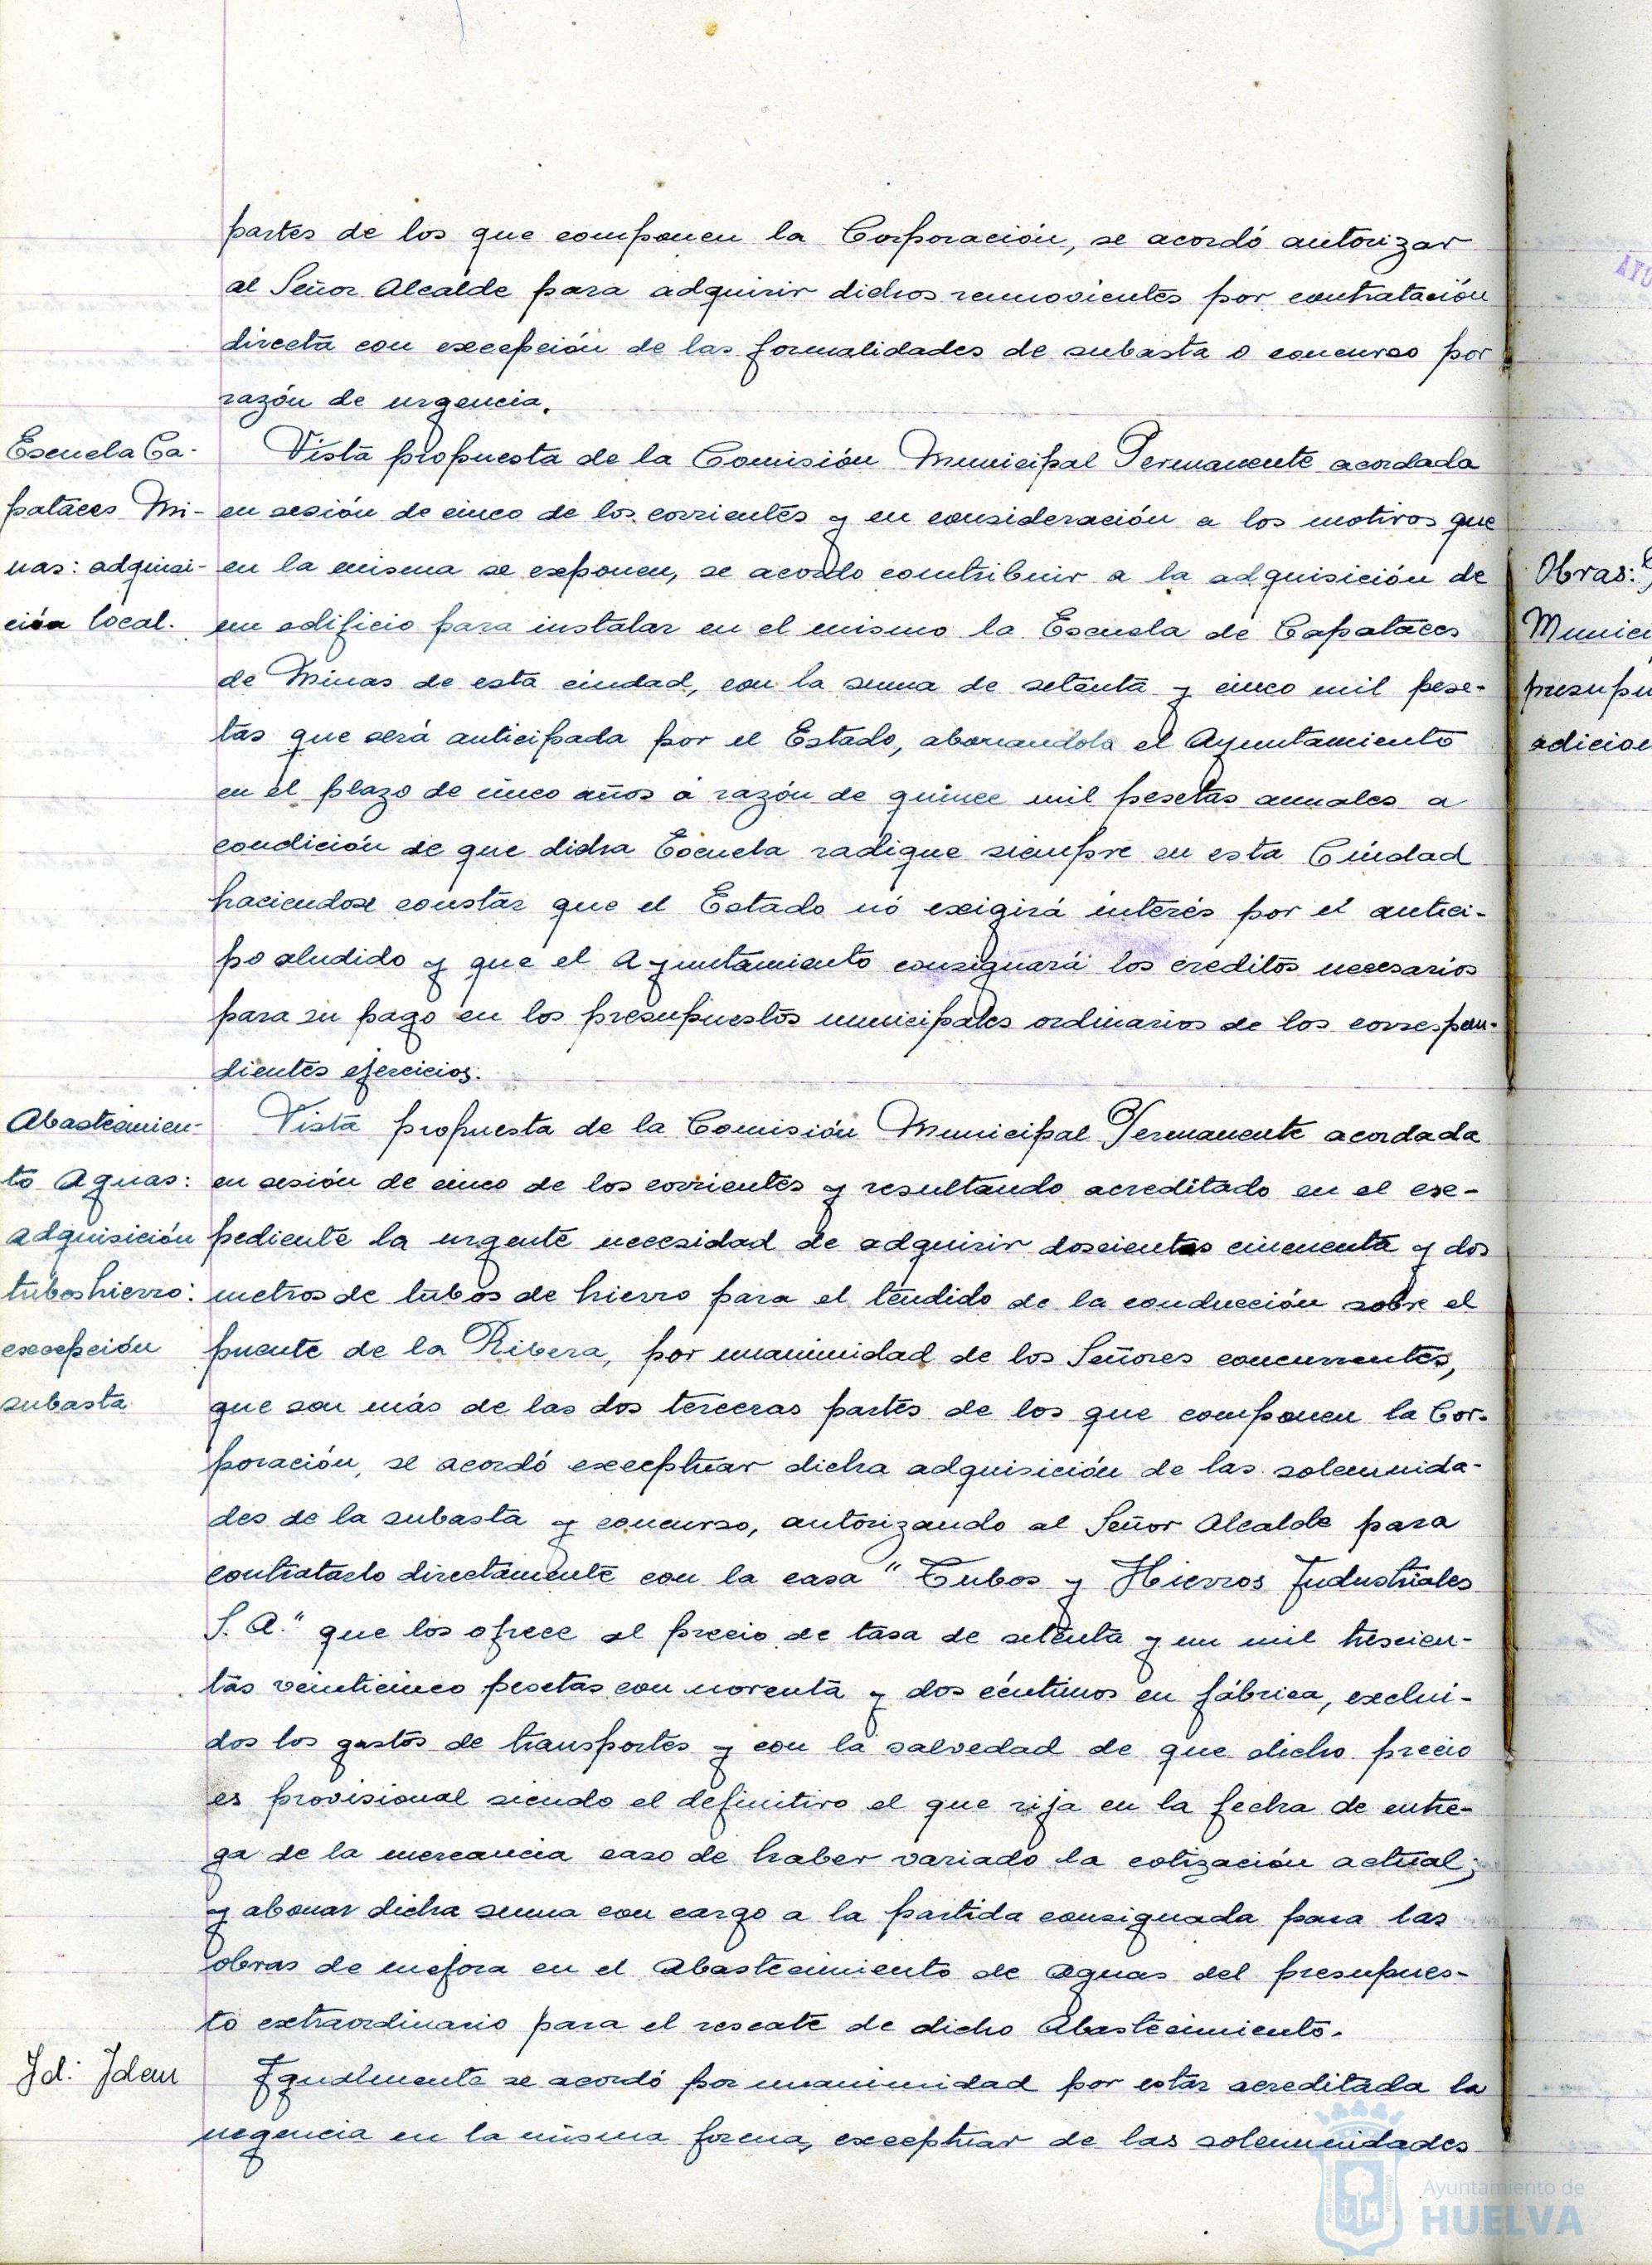 partes de los que componen la Corporación, se acordó autorizar
al Señor Alcalde para adquirir dichos semovientes por contratación
directa con excepción de las formalidades de subasta o concurso por
razón de urgencia.
Escuela Ca-
pataces Mi-
nas: adquisi-
ción local.
Vista propuesta de la Comisión Municipal Permanente acordada
en sesión de cinco de los corrientes y en consideración a los motivos que
en la misma se exponen, se acordo contribuir a la adquisición de
un edificio para instalar en el mismo la Escuela de Capataces
de Minas de esta ciudad, con la suma de setenta y cinco mil pese-
tas que será anticipada por el Estado, abonandola el Ayuntamiento
en el plazo de cinco años a razón de quince mil pesetas anuales a
condición de que dicha Escuela radique siempre en esta Ciudad
haciendose constar que el Estado nó exigirá interés por el antici-
po aludido y que el Ayuntamiento consignará los creditos necesarios
para su pago en los presupuestos municipales ordinarios de los correspon-
dientes ejercicios.
Abastecimien-
to Aguas:
adquisición
tubos hierro:
excepción
subasta
Vista propuesta de la Comisión Municipal Permanente acordada
en sesión de cinco de los corrientes y resultando acreditado en el ex-
pediente la urgente necesidad de adquirir doscientos cincuenta y dos
metros de tubos de hierro para el tendido de la conducción sobre el
puente de la Ribera, por unanimidad de los Señores concurrentes,
que son más de las dos terceras partes de los que componen la Cor-
poración, se acordó exceptuar dicha adquisición de las solemnida-
des de la subasta y concurso, autorizando al Señor Alcalde para
contratarlo directamente con la casa "Tubos y Hierros Industriales
S. A." que los ofrece al precio de tasa de setenta y un mil trescien-
tas veinticinco pesetas con noventa y dos céntimos en fábrica, exclui-
dos los gastos de transportes y con la salvedad de que dicho precio
es provisional siendo el definitivo el que rija en la fecha de entre-
ga de la mercancia caso de haber variado la cotización actual;
y abonar dicha suma con cargo a la partida consignada para las
obras de mejora en el Abastecimiento de Aguas del presupues-
to extraordinario para el rescate de dicho Abastecimiento.
Id: Idem
Igualmente se acordó por unanimidad por estar acreditada la
urgencia en la misma forma, exceptuar de las solemnidades
Obras:
Munici
presupu
adicion
AYU
Ayuntamiento de
HUELVA